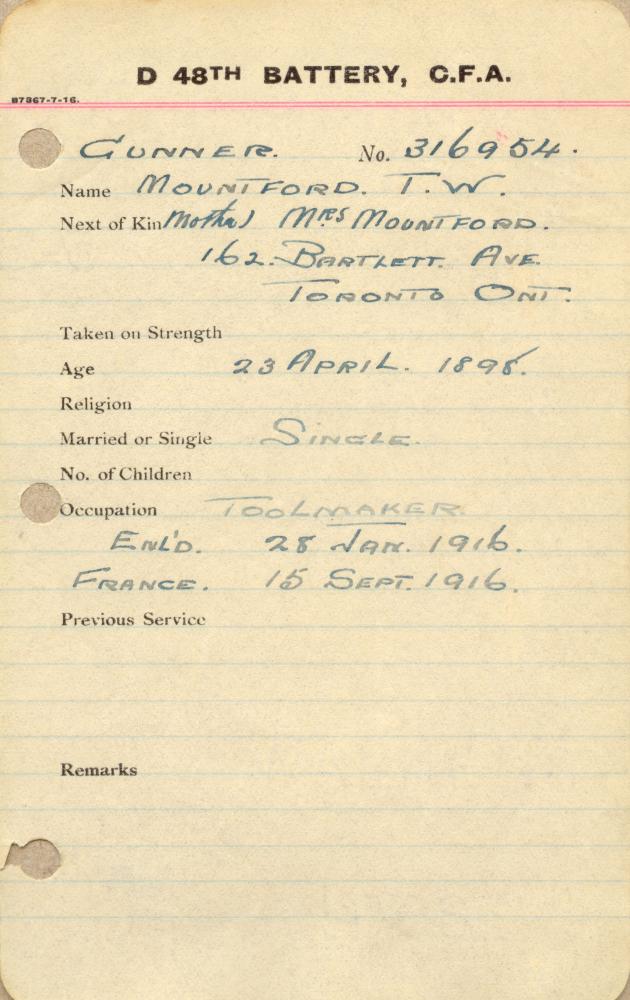 D 48TH BATTERY, C.F.A.
B7367-7-16.
GUNNER. No. 316954.
Name MOUNTFORD. T.W.
Next of Kin (Mother) MRS MOUNTFORD.
162. BARTLETT. AVE.
TORONTO ONT.
Taken on Strength
Age 23 APRIL. 1898.
Religion
Married or Single SINGLE.
No. of Children
Occupation TOOLMAKER.
ENL'D. 28 JAN. 1916.
FRANCE. 15 SEPT. 1916.
Previous Service
Remarks